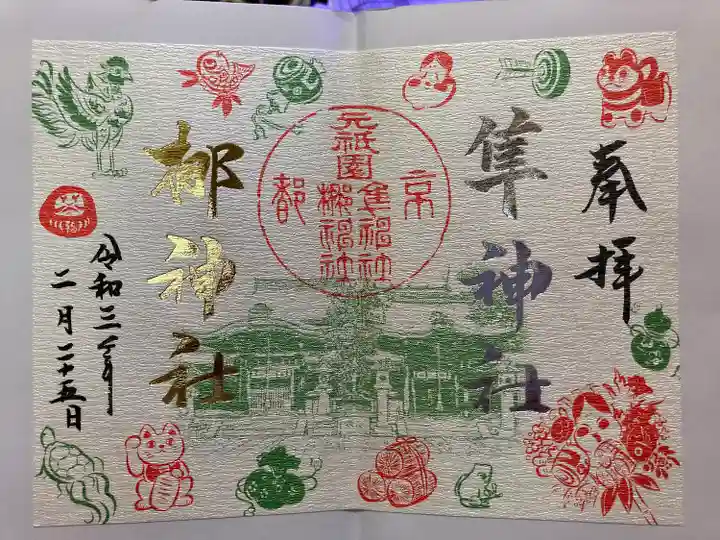 奉拝
隼神社
元祇園
隼神社
梛神社
京都
梛神社
令和三年
二月二十五日